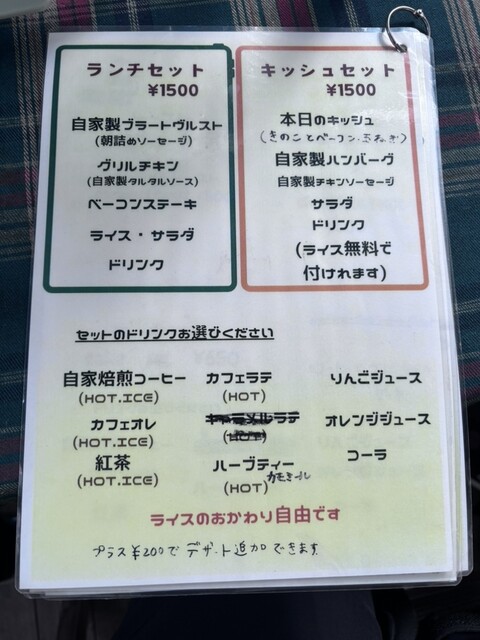 ランチセット
¥1500
自家製ブラートヴルスト
(朝詰めソーセージ)
グリルチキン
(自家製タルタルソース)
ベーコンステーキ
ライス・サラダ
ドリンク
キッシュセット
¥1500
本日のキッシュ
(きのことベーコン・玉ねぎ)
自家製ハンバーグ
自家製チキンソーセージ
サラダ
ドリンク
(ライス無料で
付けれます)
セットのドリンクお選びください
自家焙煎コーヒー
(HOT.ICE)
カフェオレ
(HOT.ICE)
紅茶
(HOT.ICE)
カフェラテ
(HOT)
キャラメルラテ
(HOT)
ハーブティー
(HOT) カモミール
りんごジュース
オレンジジュース
コーラ
ライスのおかわり自由です
プラス¥200でデザート追加できます